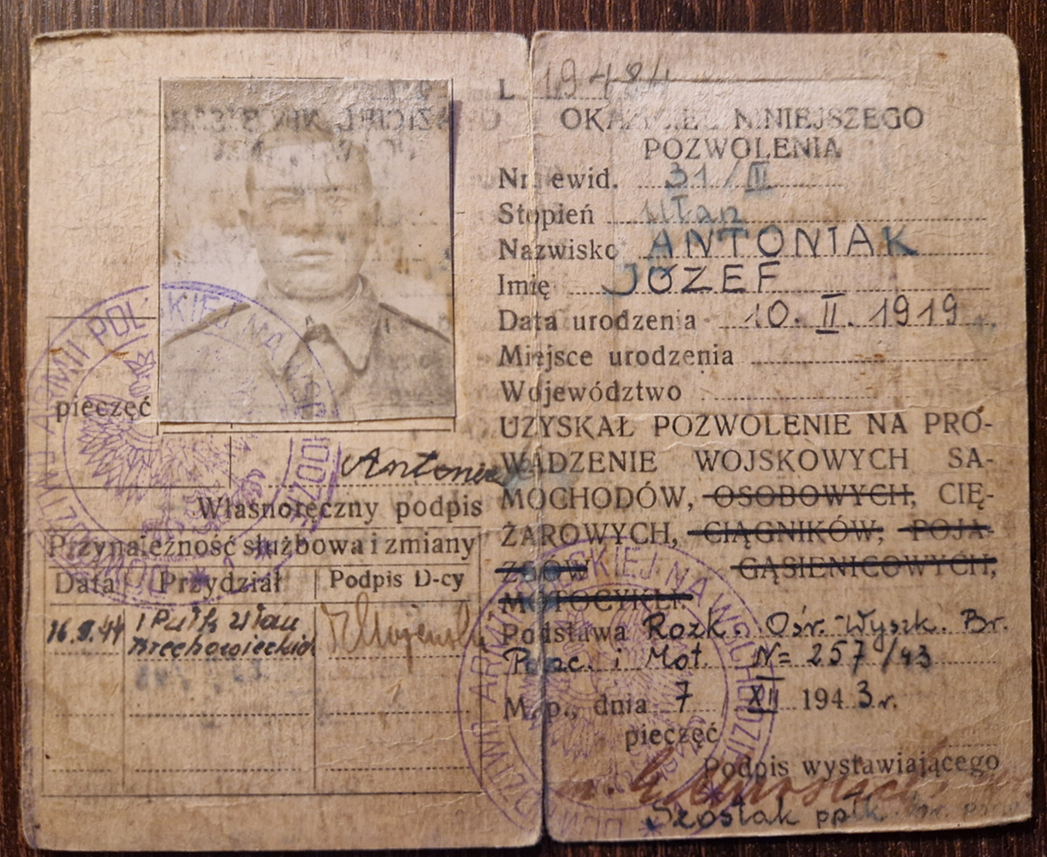 pieczęć
Antoniak
Własnoręczny podpis
Przynależność służbowa i zmiany
Data Przydział Podpis D-cy
1 Pułk Ułan
Krechowieckich
L 19484
OKAZICIEL NINIEJSZEGO
POZWOLENIA
Nr. ewid. 31/III
Stopień Ułan
Nazwisko ANTONIAK
Imię JÓZEF
Data urodzenia 10. II. 1919
Miejsce urodzenia
Województwo
UZYSKAŁ POZWOLENIE NA PRO-
WADZENIE WOJSKOWYCH SA-
MOCHODÓW, OSOBOWYCH, CIĘ-
ŻAROWYCH, CIĄGNIKÓW, POJA
ZDÓW GĄSIENICOWYCH,
MOTOCYKLI.
Podstawa Rozk. Ośr. Wyszk. Br.
Panc. i Mot. N= 257/43
M. p., dnia 7 XII 1943 r.
pieczęć
Podpis wystawiającego
Szostak ppłk